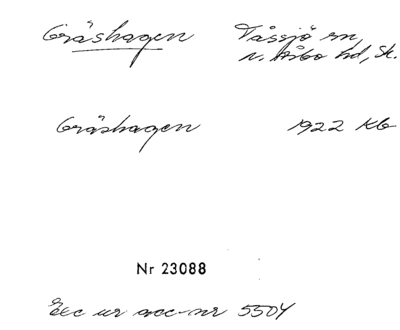 Gräshagen Tåssjö sn,
n. Åsbo hd, Sk.
Gräshagen 1922 KG
Nr 23088
Exc ur acc-nr 5504